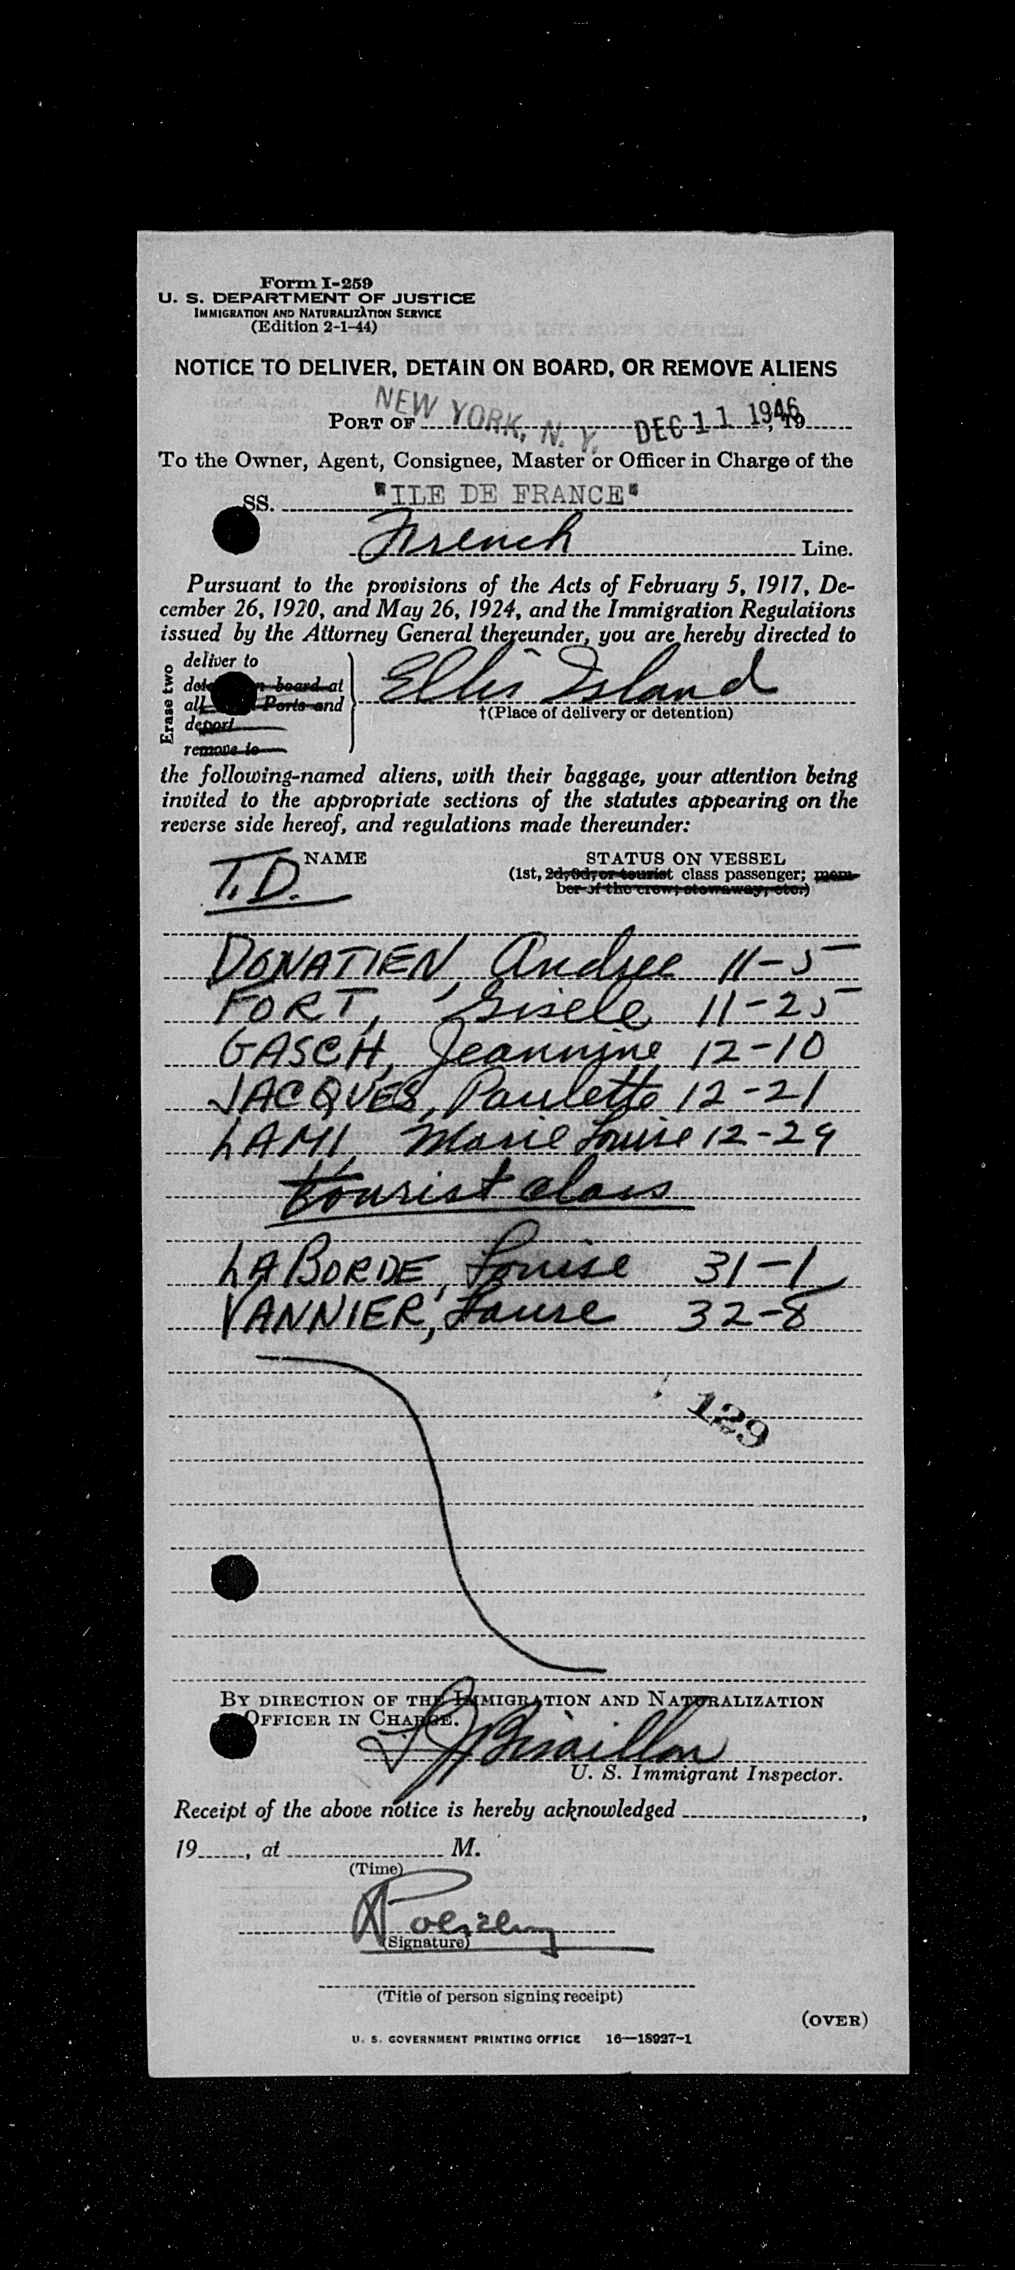 Form I-259
U. S. DEPARTMENT OF JUSTICE
IMMIGRATION AND NATURALIZATION SERVICE
(Edition 2-1-44)
NOTICE TO DELIVER, DETAIN ON BOARD, OR REMOVE ALIENS
PORT OF NEW YORK, N. Y. DEC 11 1946, 19
To the Owner, Agent, Consignee, Master or Officer in Charge of the
SS. "ILE DE FRANCE"
French Line.
Pursuant to the provisions of the Acts of February 5, 1917, De-
cember 26, 1920, and May 26, 1924, and the Immigration Regulations
issued by the Attorney General thereunder, you are hereby directed to
Erase two
deliver to
on board at
all Ports and
deport
remove to
Ellis Island
†(Place of delivery or detention)
the following-named aliens, with their baggage, your attention being
invited to the appropriate sections of the statutes appearing on the
reverse side hereof, and regulations made thereunder:
T.D. NAME STATUS ON VESSEL
(1st, 2d, 3d, or tourist class passenger; mem-
ber of the crew; stowaway, etc.)
DONATIEN, Andree 11-5
FORT, Gisele 11-25
GASCH, Jeannine 12-10
JACQUES, Paulette 12-21
LAMI, Marie Louise 12-29
tourist class
LABORDE, Louise 31-1
VANNIER, Laure 32-8
129
BY DIRECTION OF THE IMMIGRATION AND NATURALIZATION
OFFICER IN CHARGE.
U. S. Immigrant Inspector.
Receipt of the above notice is hereby acknowledged ,
19 , at M.
(Time)
(Signature)
(Title of person signing receipt)
(OVER)
U. S. GOVERNMENT PRINTING OFFICE 16—18927-1